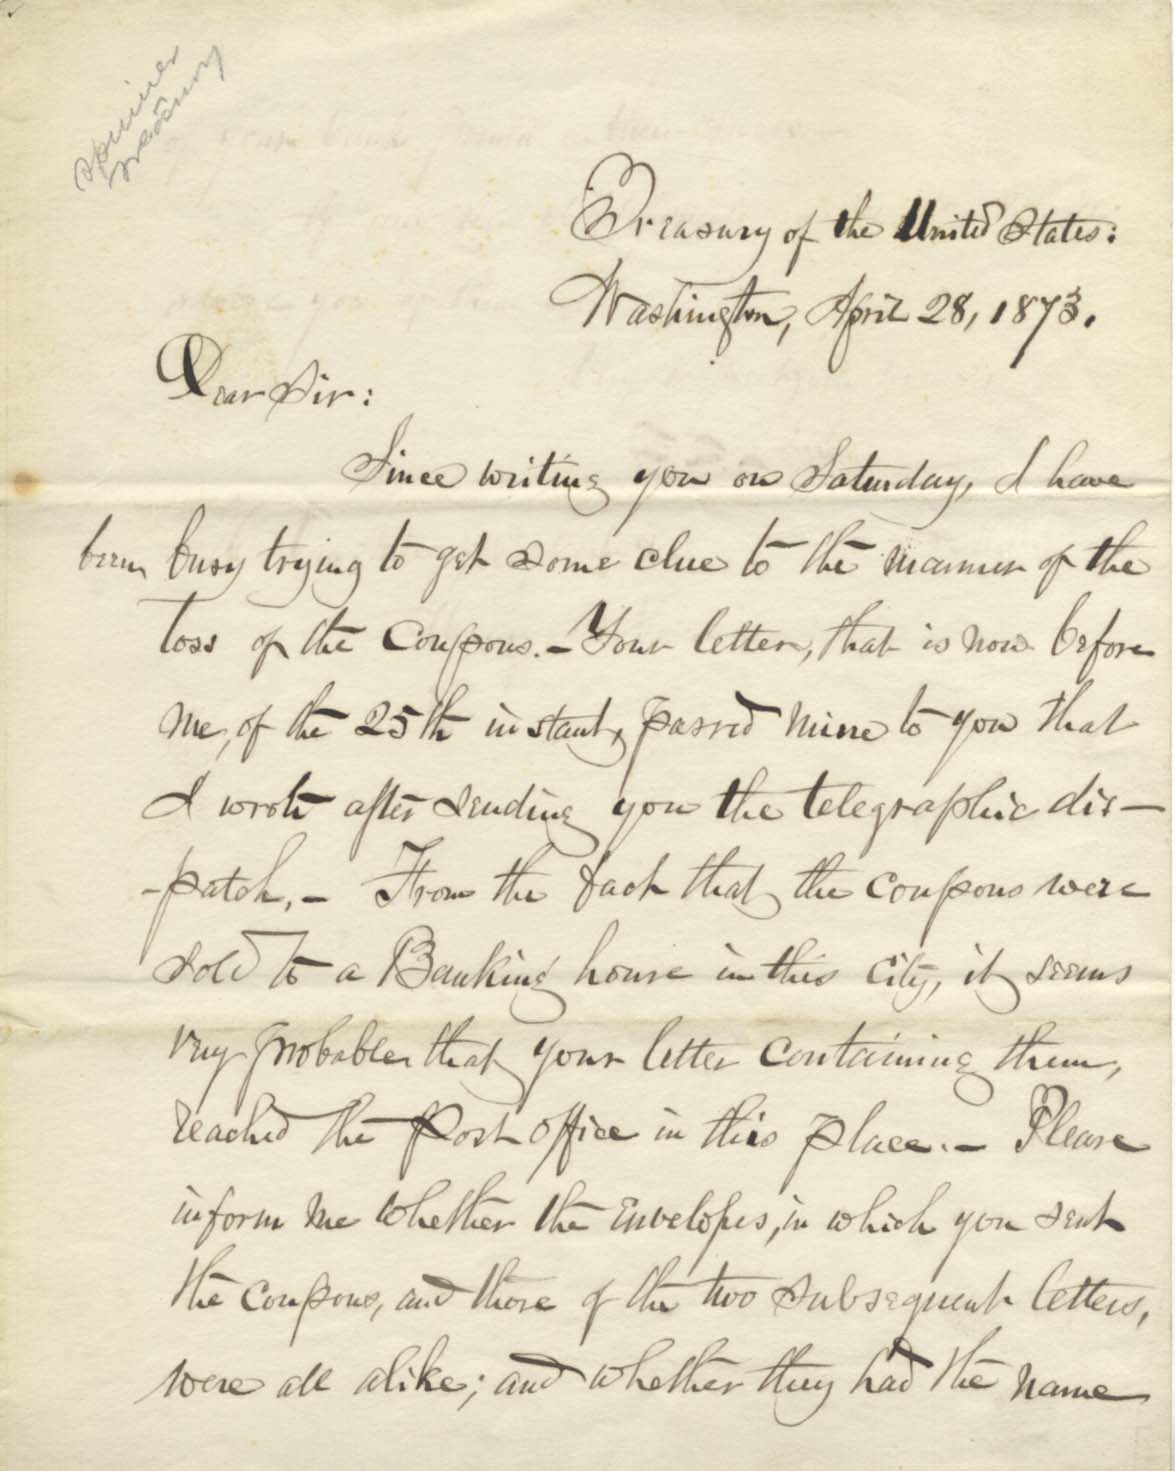 Spinner
Treasury
Treasury of the United States:
Washington, April 28, 1873.
Dear Sir:
Since writing you on Saturday, I have
been busy trying to get some clue to the manner of the
loss of the Coupons.- Your letter, that is now before
me, of the 25th instant, passed mine to you that
I wrote after sending you the telegraphic dis-
-patch,- From the fact that the coupons were
sold to a Banking house in this City, it seems
very probable that your letter containing them,
reached the Post office in this place.- Please
inform me whether the Envelopes, in which you sent
the Coupons, and those of the two subsequent letters,
were all alike; and whether they had the name